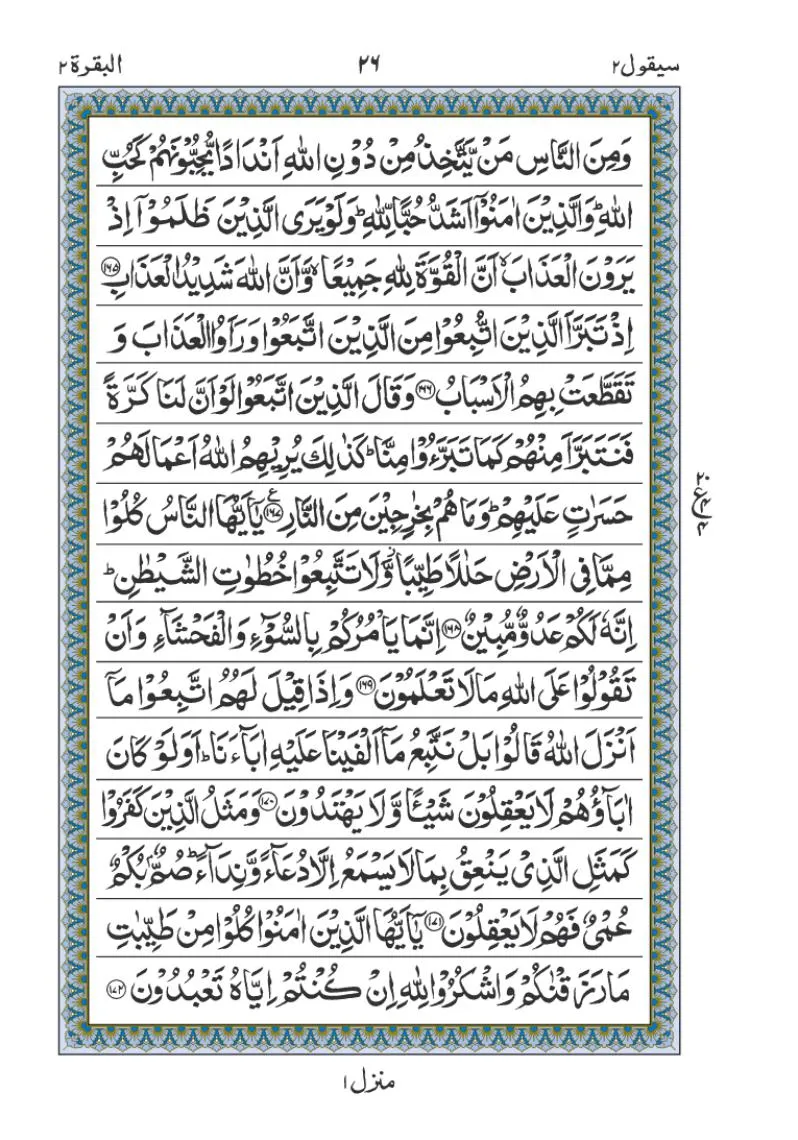 سيقول ٢
٢٦
البقرة ٢
وَمِنَ النَّاسِ مَنْ يَّتَّخِذُ مِنْ دُوْنِ اللّٰهِ اَنْدَادًا يُّحِبُّوْنَهُمْ كَحُبِّ
اللّٰهِ ؕ وَالَّذِيْنَ اٰمَنُوْۤا اَشَدُّ حُبًّا لِّلّٰهِ ؕ وَلَوْ يَرَى الَّذِيْنَ ظَلَمُوْۤا اِذْ
يَرَوْنَ الْعَذَابَ ۙ اَنَّ الْقُوَّةَ لِلّٰهِ جَمِيْعًا ۙ وَّاَنَّ اللّٰهَ شَدِيْدُ الْعَذَابِ ۝١٦٥
اِذْ تَبَرَّاَ الَّذِيْنَ اتُّبِعُوْا مِنَ الَّذِيْنَ اتَّبَعُوْا وَرَاَوُا الْعَذَابَ وَ
تَقَطَّعَتْ بِهِمُ الْاَسْبَابُ ۝١٦٦ وَقَالَ الَّذِيْنَ اتَّبَعُوْا لَوْ اَنَّ لَنَا كَرَّةً
فَنَتَبَرَّاَ مِنْهُمْ كَمَا تَبَرَّءُوْا مِنَّا ؕ كَذٰلِكَ يُرِيْهِمُ اللّٰهُ اَعْمَالَهُمْ
حَسَرٰتٍ عَلَيْهِمْ ؕ وَمَا هُمْ بِخٰرِجِيْنَ مِنَ النَّارِ ۝١٦٧ ع يٰۤاَيُّهَا النَّاسُ كُلُوْا
مِمَّا فِى الْاَرْضِ حَلٰلًا طَيِّبًا ۖ وَّلَا تَتَّبِعُوْا خُطُوٰتِ الشَّيْطٰنِ ؕ
اِنَّهٗ لَكُمْ عَدُوٌّ مُّبِيْنٌ ۝١٦٨ اِنَّمَا يَاْمُرُكُمْ بِالسُّوْٓءِ وَالْفَحْشَآءِ وَاَنْ
تَقُوْلُوْا عَلَى اللّٰهِ مَا لَا تَعْلَمُوْنَ ۝١٦٩ وَاِذَا قِيْلَ لَهُمُ اتَّبِعُوْا مَاۤ
اَنْزَلَ اللّٰهُ قَالُوْا بَلْ نَتَّبِعُ مَاۤ اَلْفَيْنَا عَلَيْهِ اٰبَآءَنَا ؕ اَوَلَوْ كَانَ
اٰبَآؤُهُمْ لَا يَعْقِلُوْنَ شَيْـًٔا وَّلَا يَهْتَدُوْنَ ۝١٧٠ وَمَثَلُ الَّذِيْنَ كَفَرُوْا
كَمَثَلِ الَّذِىْ يَنْعِقُ بِمَا لَا يَسْمَعُ اِلَّا دُعَآءً وَّنِدَآءً ؕ صُمٌّۢ بُكْمٌ
عُمْىٌ فَهُمْ لَا يَعْقِلُوْنَ ۝١٧١ يٰۤاَيُّهَا الَّذِيْنَ اٰمَنُوْا كُلُوْا مِنْ طَيِّبٰتِ
مَا رَزَقْنٰكُمْ وَاشْكُرُوْا لِلّٰهِ اِنْ كُنْتُمْ اِيَّاهُ تَعْبُدُوْنَ ۝١٧٢
منزل ١